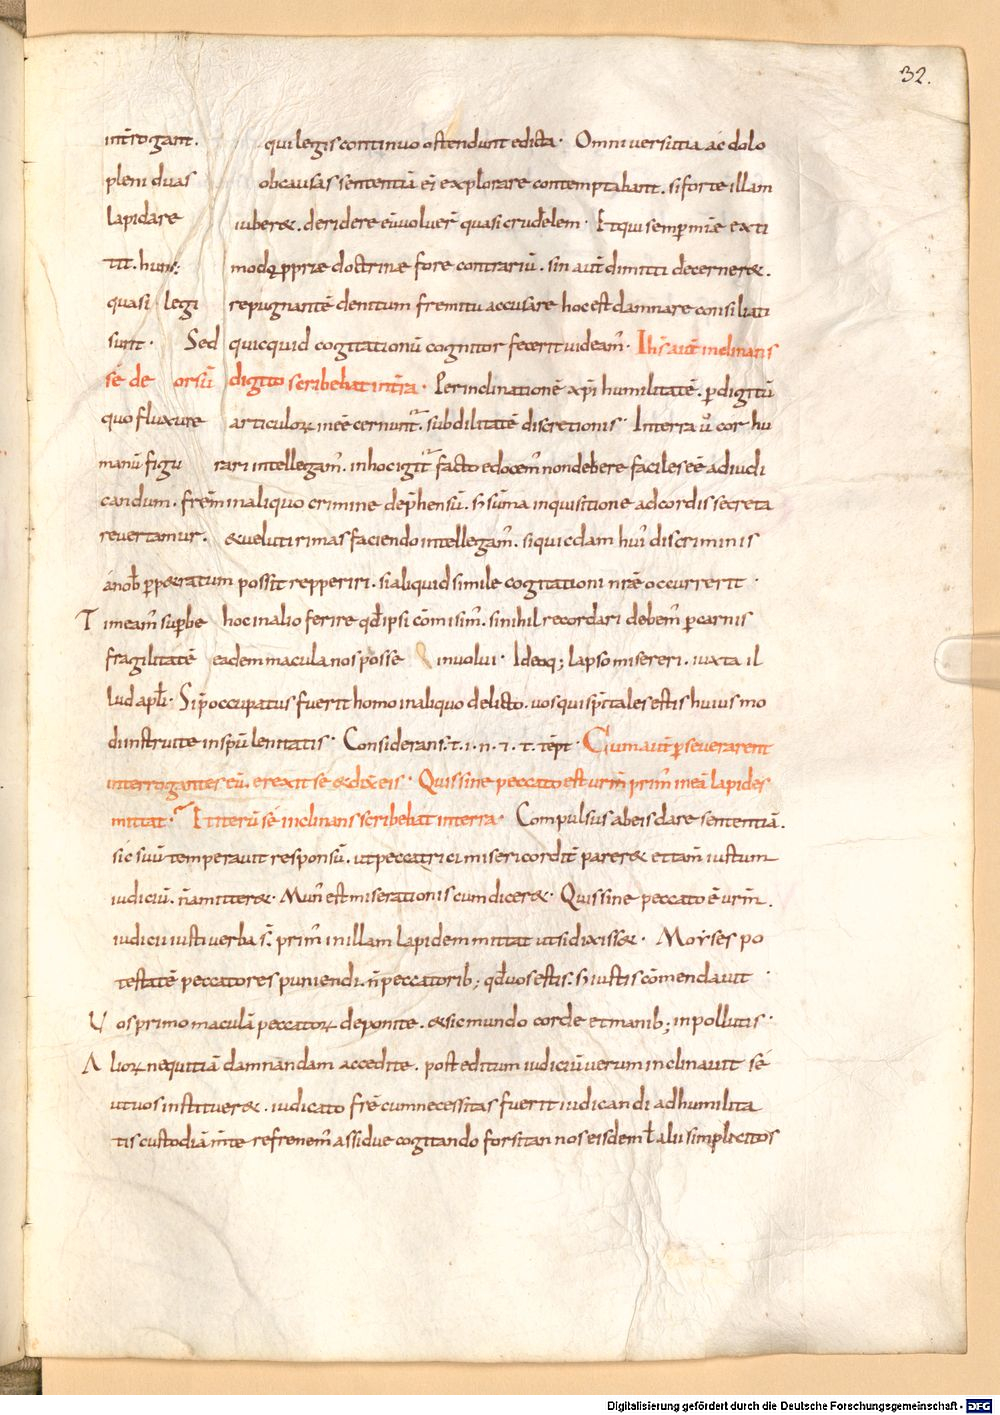 32.
intr̄rogant. qui legis continuo ostendunt edicta· Omni uersutia ac dolo
pleni duas ob causas sententiā ei explorare contemptabant. si forte illam
lapidare iuber&. deridere eū uoluer̄ quasi crudelem· Et qui semp mīae exti
tit. hunc modo p̱priae doctrinae fore contrariū. sin aut̄ dimitti decerner&.
quasi legi repugnantē dentium fremitu accusare hoc est damnare consiliati
sunt· Sed quicquid cogitationū cognitor fecerit uideam̄· Ihs̄ aut̄ inclinans
sé deorsū digito scribebat in tr̄a· Per inclinationē xp̄i humilitatē. p digitū
quo fluxure articulorꝝ inee cernunt̄. subdilitatē discretionis· In terra u̓ cor hu
manū figurari intellegam̄. in hoc igit̄ facto edocem̄ non debere faciles eē ad iudi
candum. frēm in aliquo crimine dep̄hensū. s; sūma inquisitione ad cordis secreta
reuertamur. & ueluti rimas faciendo intellegam̄. si quicdam hui̓ discriminis
á nob̄ pp&ratum possit repperiri. si aliquid simile cogitationi nr̄ae occurrerit·
Timeam̄ supbe hoc in alio ferire qd̄ ipsi cōmisim̄. si nihil recordari debem̄ p carnis
fragilitatē eadem macula nos posse inuolui· Ideoq; lapso misereri. iuxta il
lud apl̄i· Si p̄occupatus fuerit homo in aliquo delicto. uos qui sp̄itales estis huius mo
di instruite in sp̄u lenitatis· Considerans. t. i. n. &. t. tēpt· Cum aut̄ pseuerarent
interrogantes eū. erexit se & dix̄ eis· Qui s sine peccato est ur̄m prim̄ in eā lapides
mittat· Et iterū sé inclinans scribebat in terra· Compulsus ab eis dare sententiā.
sic suū temperauit responsū. ut peccatrici misericordit̄ parer& et tam̄ iustum
iudiciū. n̄ amitter&· Mun̄ est miserationis cum dicer&· Qui s sine peccato ē ur̄m.
iudicii iusti uerba s̄. prim̄ in illam lapidem mittat ut si dixiss&· Moyses po
testatē peccatores puniendi. n̄ peccatorib; qd̄ uos estis. s; iustis cōmendauit·
Uos primo maculā peccatorꝝ deponite. & sic mundo corde et manib; inpollutis·
Aliorꝝ nequitiā damnandam accedite. post editum iudiciū uerum inclinauit sé
ut uos instituer&. iudicato frē cum necessitas fuerit iudicandi ad humilita
tis custodiā m̄te refrenem̄ assidue cogitando forsitan nos eisdem l̄ alii simplecitos
Digitalisierung gefördert durch die Deutsche Forschungsgemeinschaft · DFG